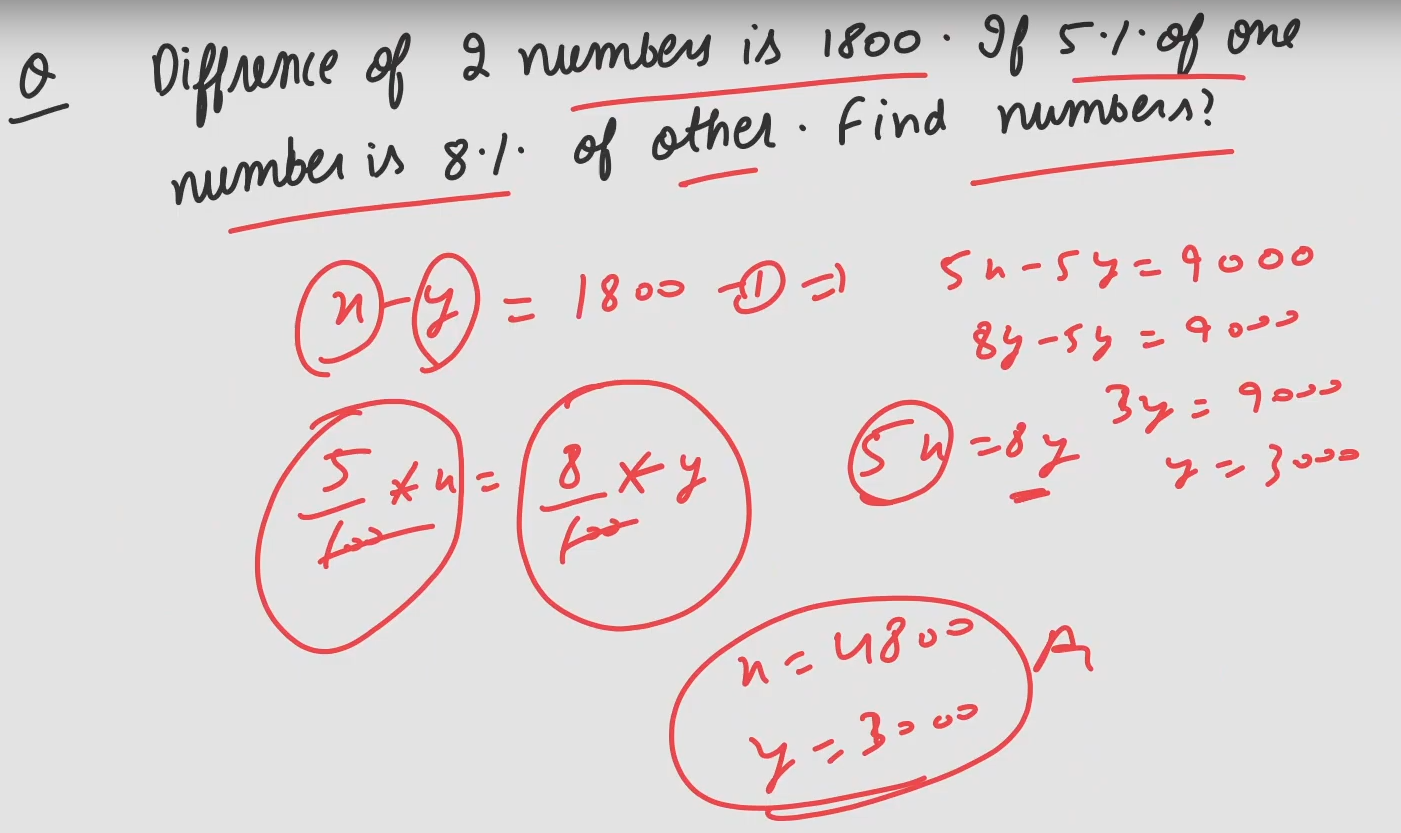 Q Diffrence of 2 numbers is 1800. If 5% of one
number is 8% of other. Find numbers?
x - y = 1800 - ① ⇒ 5x - 5y = 9000
8y - 5y = 9000
3y = 9000
5/100 * x = 8/100 * y 5x = 8y y = 3000
x = 4800 A
y = 3000